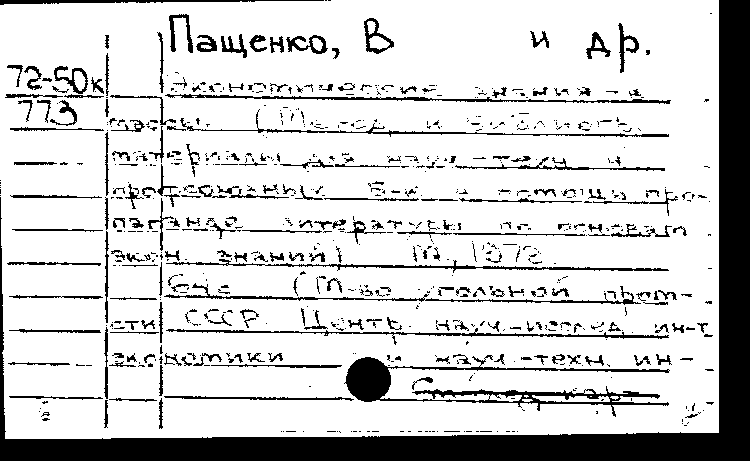 Пащенко, В и др.
72-50к Экономические знания - в
773 массы. (Метод. и библиогр.
материалы для науч.-техн. и
профсоюзных б-к в помощь про-
паганде литературы по основам
экон. знаний) М., 1972.
64с (М-во угольной пром-
сти СССР. Центр. науч.-исслед. ин-т
экономики и науч.-техн. ин-
См. след. карт.